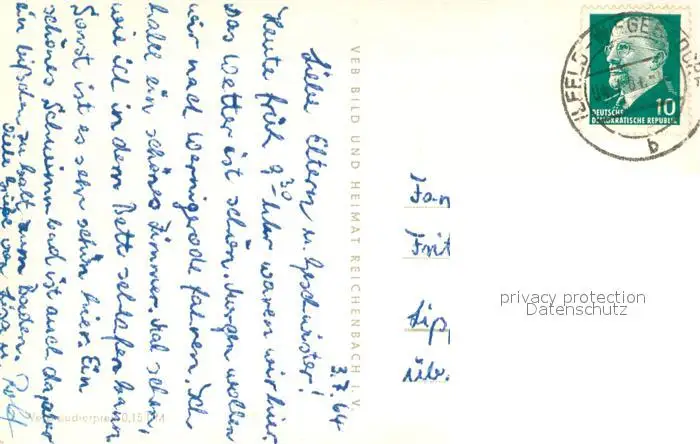 3.7.64
Liebe Eltern u. Geschwister!
Heute früh 9³⁰ Uhr waren wir hier.
Das Wetter ist schön. Morgen wollen
wir nach Wernigerode fahren. Ich
habe ein schönes Zimmer. Mal sehen,
wie ich in dem Bett schlafen kann.
Sonst ist es sehr schön hier. Ein
schönes Schwimmbad ist auch da, aber
ein bißchen zu kalt zum Baden.
Viele Grüße von Lisa u. Rolf
VEB BILD UND HEIMAT REICHENBACH I. V.
Fam
Frit
Lip
üb.
DEUTSCHE
DEMOKRATISCHE REPUBLIK
10
ILFELD
b
privacy protection
Datenschutz